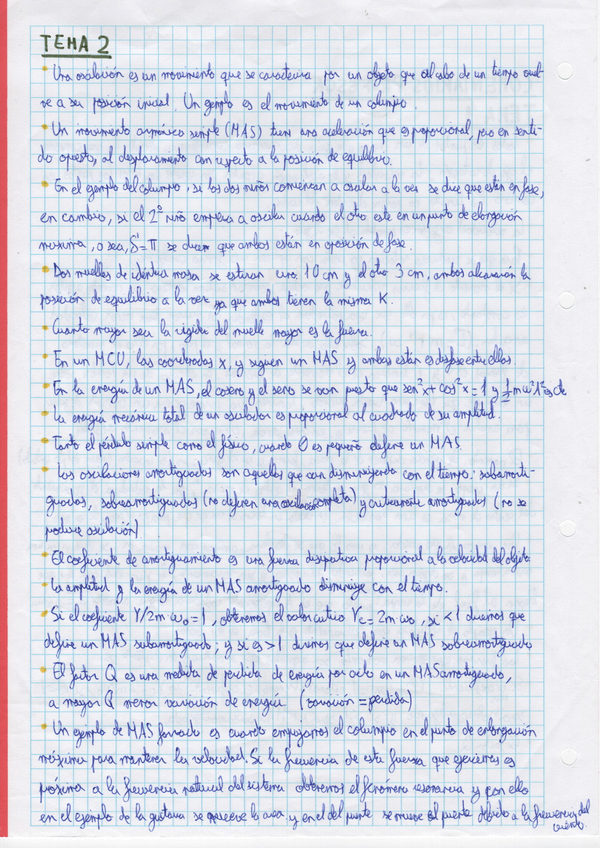 TEMA 2
• Una oscilación es un movimiento que se caracteriza por un objeto que al cabo de un tiempo vuel-
ve a su posición inicial. Un ejemplo es el movimiento de un columpio
• Un movimiento armónico simple (MAS) tiene una aceleración que es proporcional, pero en senti-
do opuesto, al desplazamiento con respecto a la posición de equilibrio.
• En el ejemplo del columpio, si los dos niños comienzan a oscilar a la vez se dice que están en fase,
en cambio, si el 2º niño empieza a oscilar cuando el otro este en un punto de elongación
máxima, o sea, δ=π se dicen que ambos están en oposición de fase.
• Dos muelles de idéntica masa se estiran uno 10 cm y el otro 3 cm, ambos alcanzarán la
posición de equilibrio a la vez ya que ambos tienen la misma K.
• Cuanto mayor sea la rigidez del muelle mayor es la fuerza.
• En un MCU, las coordenadas x, y siguen un MAS y ambas están desfase entre ellas
• En la energía de un MAS, el coseno y el seno se van puesto que sen²x + cos²x = 1 y ½mω²A² es cte
• La energía mecánica total de un oscilador es proporcional al cuadrado de su amplitud.
• Tanto el péndulo simple como el físico, cuando θ es pequeño define un MAS.
• Las oscilaciones amortiguadas son aquellas que van disminuyendo con el tiempo: subamorti-
guadas, sobreamortiguadas (no definen una oscilación completa) y críticamente amortiguadas (no se
produce oscilación)
• El coeficiente de amortiguamiento es una fuerza disipativa proporcional a la velocidad del objeto
• La amplitud y la energía de un MAS amortiguado disminuye con el tiempo.
• Si el coeficiente γ/2mω₀=1, obtenemos el valor crítico γc=2mω₀, si <1 diremos que
define un MAS subamortiguado; y si es >1 diremos que define un MAS sobreamortiguado
• El factor Q es una medida de perdida de energía por ciclo en un MAS amortiguado,
a mayor Q menor variación de energía (variación = perdida)
• Un ejemplo de MAS forzado es cuando empujamos el columpio en el punto de enlongación
máxima para mantener la velocidad. Si la frecuencia de esta fuerza que ejercemos es
próxima a la frecuencia natural del sistema obtenemos el fenómeno resonancia y con ello
en el ejemplo de la guitarra se mueve la caja y en el del puente se mueve el puente debido a la frecuencia del
viento